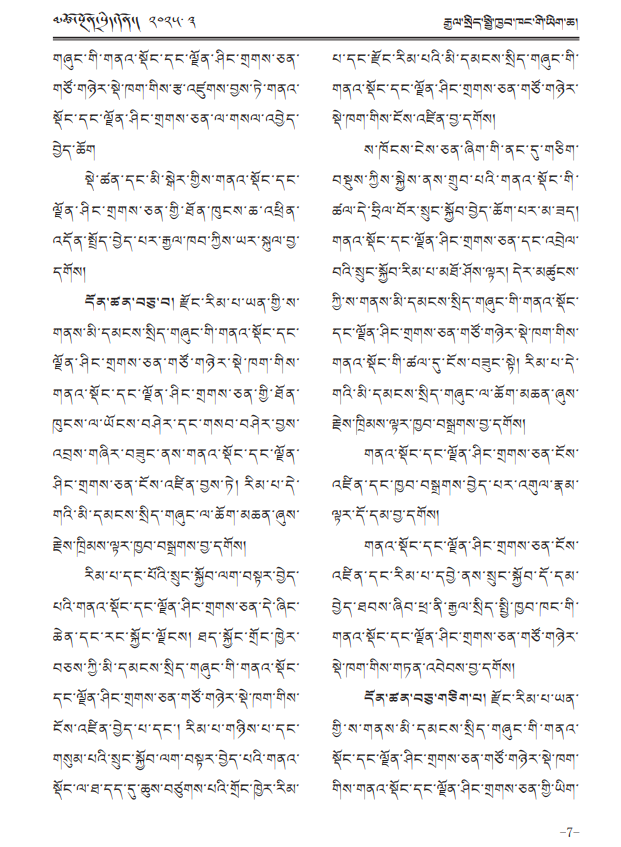 ༄༅། །མཚོ་སྔོན་གྱི་གཞུང་། ༢༠༢༥·༣
རྒྱལ་སྲིད་སྤྱི་ཁྱབ་ཁང་གི་ཡིག་ཆ།
གཞུང་གི་གནའ་སྡོང་དང་ལྗོན་ཤིང་གྲགས་ཅན་
གཙོ་གཉེར་སྡེ་ཁག་གིས་རྩ་འཛུགས་བྱས་ཏེ་གནའ་
སྡོང་དང་ལྗོན་ཤིང་གྲགས་ཅན་ལ་གསལ་འབྱེད་
བྱེད་ཆོག
སྡེ་ཚན་དང་མི་སྒེར་གྱིས་གནའ་སྡོང་དང་
ལྗོན་ཤིང་གྲགས་ཅན་གྱི་ཐོན་ཁུངས་ཆ་འཕྲིན་
འདོན་སྤྲོད་བྱེད་པར་རྒྱལ་ཁབ་ཀྱིས་ཡར་སྐུལ་བྱ་
དགོས།
དོན་ཚན་བཅུ་བ། རྫོང་རིམ་པ་ཡན་གྱི་ས་
གནས་མི་དམངས་སྲིད་གཞུང་གི་གནའ་སྡོང་དང་
ལྗོན་ཤིང་གྲགས་ཅན་གཙོ་གཉེར་སྡེ་ཁག་གིས་
གནའ་སྡོང་དང་ལྗོན་ཤིང་གྲགས་ཅན་གྱི་ཐོན་
ཁུངས་ལ་ཡོངས་བཤེར་དང་གསབ་བཤེར་བྱས་
འབྲས་གཞིར་བཟུང་ནས་གནའ་སྡོང་དང་ལྗོན་
ཤིང་གྲགས་ཅན་ངོས་འཛིན་བྱས་ཏེ། རིམ་པ་དེ་
གའི་མི་དམངས་སྲིད་གཞུང་ལ་ཆོག་མཆན་ཞུས་
རྗེས་ཁྲིམས་ལྟར་ཁྱབ་བསྒྲགས་བྱ་དགོས།
རིམ་པ་དང་པོའི་སྲུང་སྐྱོབ་ལག་བསྟར་བྱེད་
པའི་གནའ་སྡོང་དང་ལྗོན་ཤིང་གྲགས་ཅན་དེ་ཞིང་
ཆེན་དང་རང་སྐྱོང་ལྗོངས། ཐད་སྐྱོང་གྲོང་ཁྱེར་
བཅས་ཀྱི་མི་དམངས་སྲིད་གཞུང་གི་གནའ་སྡོང་
དང་ལྗོན་ཤིང་གྲགས་ཅན་གཙོ་གཉེར་སྡེ་ཁག་གིས་
ངོས་འཛིན་བྱེད་པ་དང་། རིམ་པ་གཉིས་པ་དང་
གསུམ་པའི་སྲུང་སྐྱོབ་ལག་བསྟར་བྱེད་པའི་གནའ་
སྡོང་ལ་ཐ་དད་དུ་ཆུས་བཙུགས་པའི་གྲོང་ཁྱེར་རིམ་
པ་དང་རྫོང་རིམ་པའི་མི་དམངས་སྲིད་གཞུང་གི་
གནའ་སྡོང་དང་ལྗོན་ཤིང་གྲགས་ཅན་གཙོ་གཉེར་
སྡེ་ཁག་གིས་ངོས་འཛིན་བྱ་དགོས།
ས་ཁོངས་ངེས་ཅན་ཞིག་གི་ནང་དུ་གཅིག་
བསྡུས་ཀྱིས་སྐྱེས་ནས་གྲུབ་པའི་གནའ་སྡོང་གི་
ཚལ་དེ་ཧྲིལ་བོར་སྲུང་སྐྱོབ་བྱེད་ཆོག་པར་མ་ཟད།
གནའ་སྡོང་དང་ལྗོན་ཤིང་གྲགས་ཅན་དང་འབྲེལ་
བའི་སྲུང་སྐྱོབ་རིམ་པ་མཐོ་ཤོས་ལྟར། དེར་མཚུངས་
ཀྱི་ས་གནས་མི་དམངས་སྲིད་གཞུང་གི་གནའ་སྡོང་
དང་ལྗོན་ཤིང་གྲགས་ཅན་གཙོ་གཉེར་སྡེ་ཁག་གིས་
གནའ་སྡོང་གི་ཚལ་དུ་ངོས་བཟུང་སྟེ། རིམ་པ་དེ་
གའི་མི་དམངས་སྲིད་གཞུང་ལ་ཆོག་མཆན་ཞུས་
རྗེས་ཁྲིམས་ལྟར་ཁྱབ་བསྒྲགས་བྱ་དགོས།
གནའ་སྡོང་དང་ལྗོན་ཤིང་གྲགས་ཅན་ངོས་
འཛིན་དང་ཁྱབ་བསྒྲགས་བྱེད་པར་འགུལ་རྣམ་
ལྟར་དོ་དམ་བྱ་དགོས།
གནའ་སྡོང་དང་ལྗོན་ཤིང་གྲགས་ཅན་ངོས་
འཛིན་དང་རིམ་པ་དབྱེ་ནས་སྲུང་སྐྱོབ་དོ་དམ་
བྱེད་ཐབས་ཞིབ་ཕྲ་ནི་རྒྱལ་སྲིད་སྤྱི་ཁྱབ་ཁང་གི་
གནའ་སྡོང་དང་ལྗོན་ཤིང་གྲགས་ཅན་གཙོ་གཉེར་
སྡེ་ཁག་གིས་གཏན་འབེབས་བྱ་དགོས།
དོན་ཚན་བཅུ་གཅིག་པ། རྫོང་རིམ་པ་ཡན་
གྱི་ས་གནས་མི་དམངས་སྲིད་གཞུང་གི་གནའ་
སྡོང་དང་ལྗོན་ཤིང་གྲགས་ཅན་གཙོ་གཉེར་སྡེ་ཁག་
གིས་གནའ་སྡོང་དང་ལྗོན་ཤིང་གྲགས་ཅན་གྱི་ཡིག་
–7–